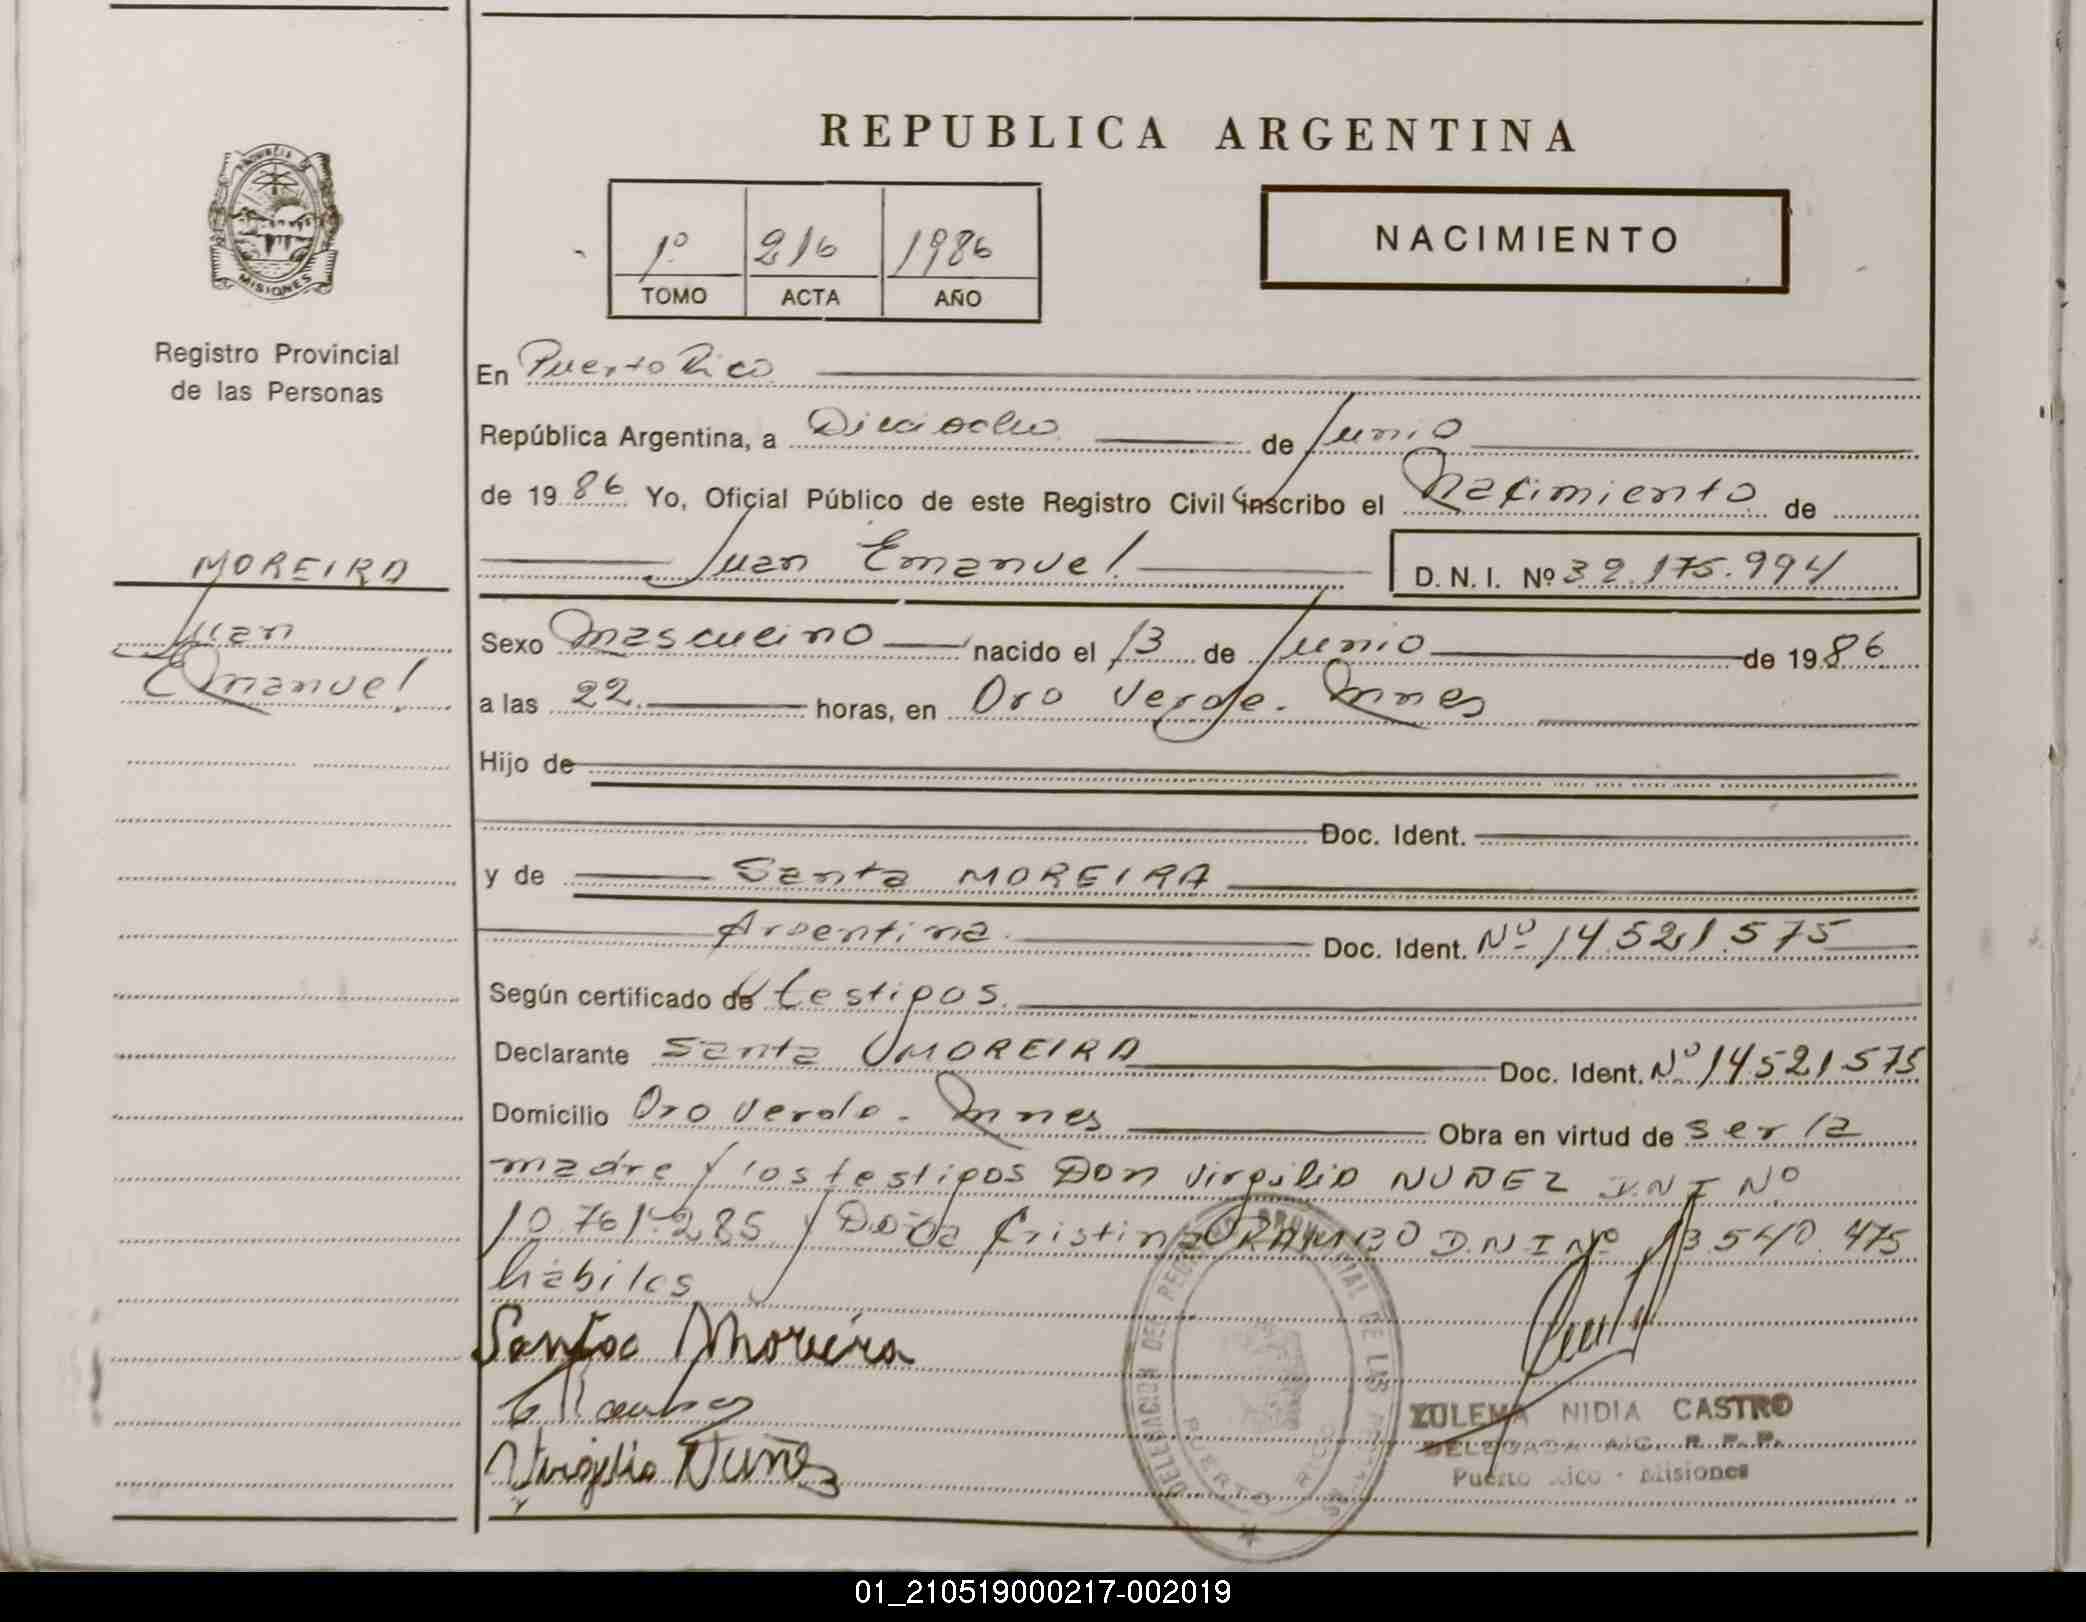 REPUBLICA ARGENTINA
PROVINCIA DE
MISIONES
Registro Provincial
de las Personas
1º 216 1986
TOMO ACTA AÑO
NACIMIENTO
En Puerto Rico
República Argentina, a Dieciocho de Junio
de 1986 Yo, Oficial Público de este Registro Civil inscribo el Nacimiento de
MOREIRA
Juan
Emanuel
Juan Emanuel D. N. I. Nº 32.175.994
Sexo Masculino nacido el 13 de Junio de 1986
a las 22 horas, en Oro Verde. Mnes
Hijo de
Doc. Ident.
y de Santa MOREIRA
Argentina Doc. Ident. Nº 14.521.575
Según certificado de testigos.
Declarante Santa MOREIRA Doc. Ident. Nº 14521575
Domicilio Oro Verde - Mnes Obra en virtud de ser la
madre y los testigos Don Virgilio NUÑEZ D.N.I Nº
10.761.285 y Doña Cristina RAMBO D.N.I Nº 13.540.475
hábiles
Santa Moreira
Virgilio Nuñez
DELEGACION DEL REGISTRO PROVINCIAL DE LAS PERSONAS
PUERTO RICO
ZULEMA NIDIA CASTRO
DELEGADA A/C. R. P. P.
Puerto Rico - Misiones
01_210519000217-002019